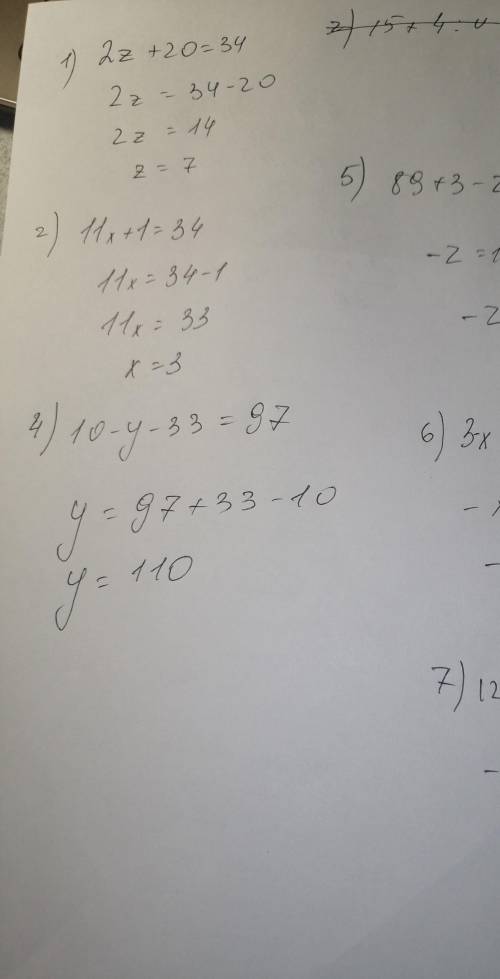 1) 2z + 20 = 34
2z = 34 - 20
2z = 14
z = 7
2) 11x + 1 = 34
11x = 34 - 1
11x = 33
x = 3
4) 10 - y - 33 = 97
y = 97 + 33 - 10
y = 110
z) 15 + 4 :
5) 89 + 3 - z
- z = 1
- z
6) 3 - x
-
-
7) 12
-